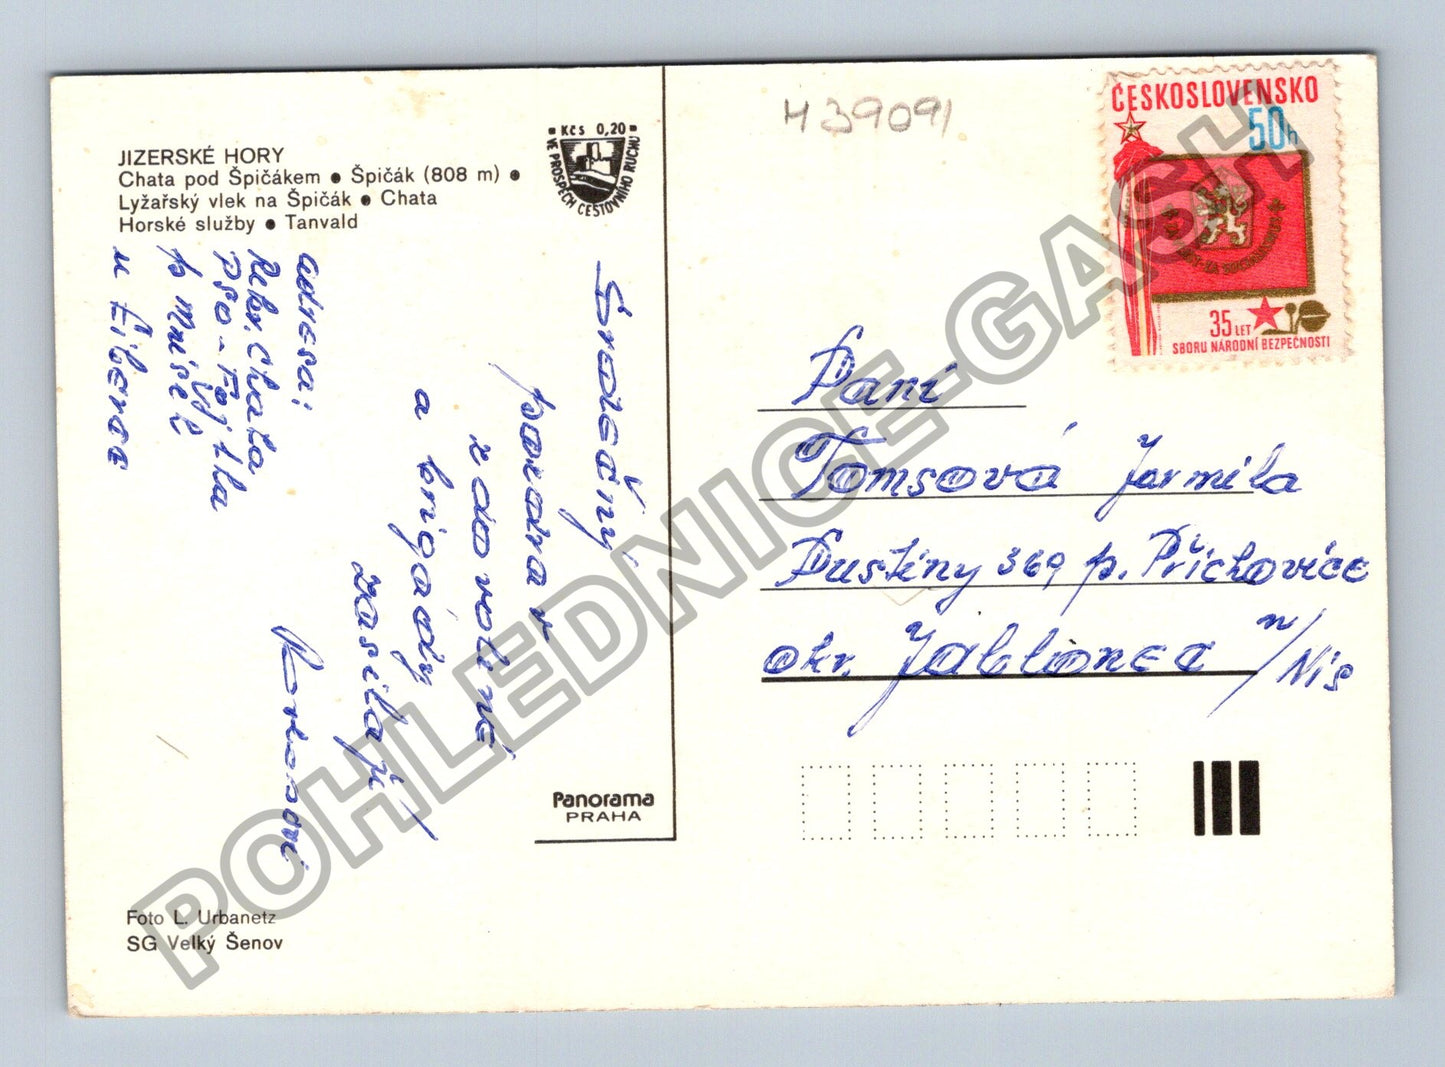 JIZERSKÉ HORY
Chata pod Špičákem ● Špičák (808 m) ●
Lyžařský vlek na Špičák ● Chata
Horské služby ● Tanvald
Kčs 0,20
VE PROSPĚCH CESTOVNÍHO RUCHU
H39091
ČESKOSLOVENSKO
50h
35 LET
SBORU NÁRODNÍ BEZPEČNOSTI
Srdečný
pozdrav
z dovolené
a brigády
zasílají
adresa:
Rekr. Chata
PSO - Fojtka
p. mníšek
u Liberce
Paní
Tomsová Jarmila
Pustiny 369 p. Příchovice
okr. Jablonec n/Nis
Panorama
PRAHA
Foto L. Urbanetz
SG Velký Šenov
POHLEDNICE-GASH